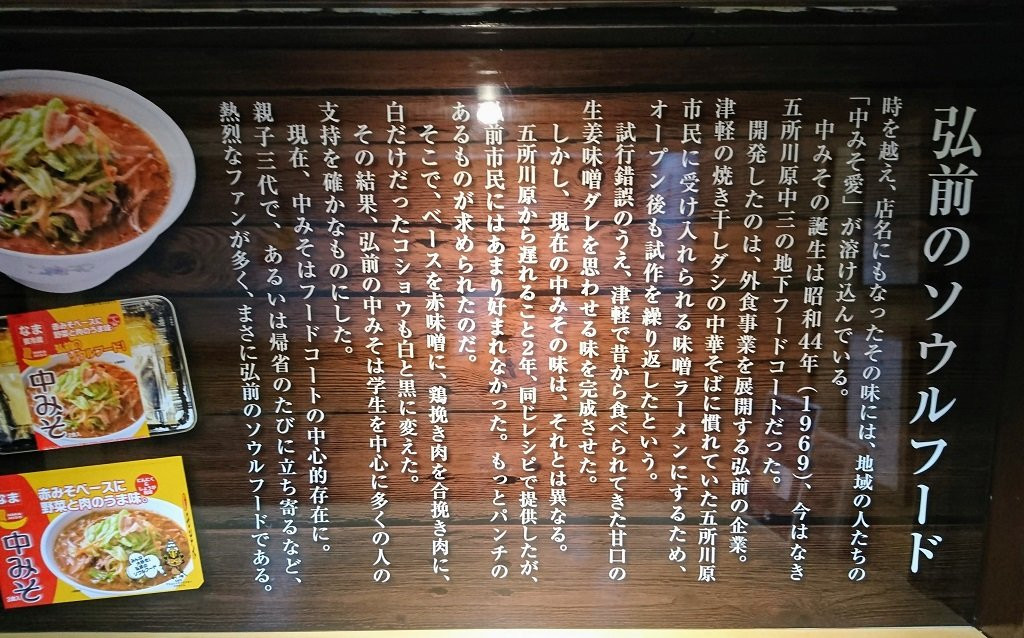 弘前のソウルフード
時を越え、店名にもなったその味には、地域の人たちの
「中みそ愛」が溶け込んでいる。
中みその誕生は昭和44年（1969）、今はなき
五所川原中三の地下フードコートだった。
開発したのは、外食事業を展開する弘前の企業。
津軽の焼き干しダシの中華そばに慣れていた五所川原
市民に受け入れられる味噌ラーメンにするため、
オープン後も試作を繰り返したという。
試行錯誤のうえ、津軽で昔から食べられてきた甘口の
生姜味噌ダレを思わせる味を完成させた。
しかし、現在の中みその味は、それとは異なる。
五所川原から遅れること2年、同じレシピで提供したが、
弘前市民にはあまり好まれなかった。もっとパンチの
あるものが求められたのだ。
そこで、ベースを赤味噌に、鶏挽き肉を合挽き肉に、
白だけだったコショウも白と黒に変えた。
その結果、弘前の中みそは学生を中心に多くの人の
支持を確かなものにした。
現在、中みそはフードコートの中心的存在に。
親子三代で、あるいは帰省のたびに立ち寄るなど、
熱烈なファンが多く、まさに弘前のソウルフードである。
なま
赤みそベースに
野菜と肉のうま味
中みそ
なま
赤みそベースに
野菜と肉のうま味。
中みそ